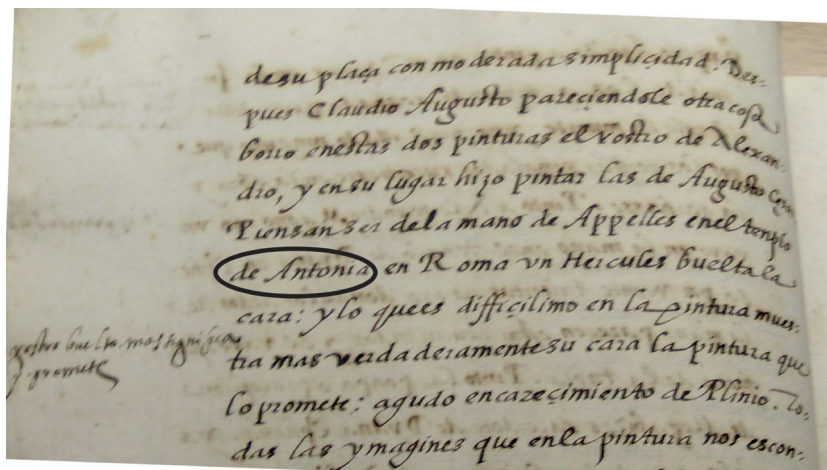 de su plaça con moderada simplicidad. Des-
pues Claudio Augusto pareciendole otra cosa
borro enestas dos pinturas el rostro de Alexan-
dro, y en su lugar hizo pintar las de Augusto Cesar
Piensan ser dela mano de Appelles enel templo
de Antonia en Roma vn Hercules buelta la
cara: y lo quees difficilimo en la pintura mues-
tra mas verdaderamente su cara la pintura que
lo promete: agudo encarecimiento de Plinio. To-
das las ymagines que enla pintura nos escon-
rostro buelto mas significa
q. promete